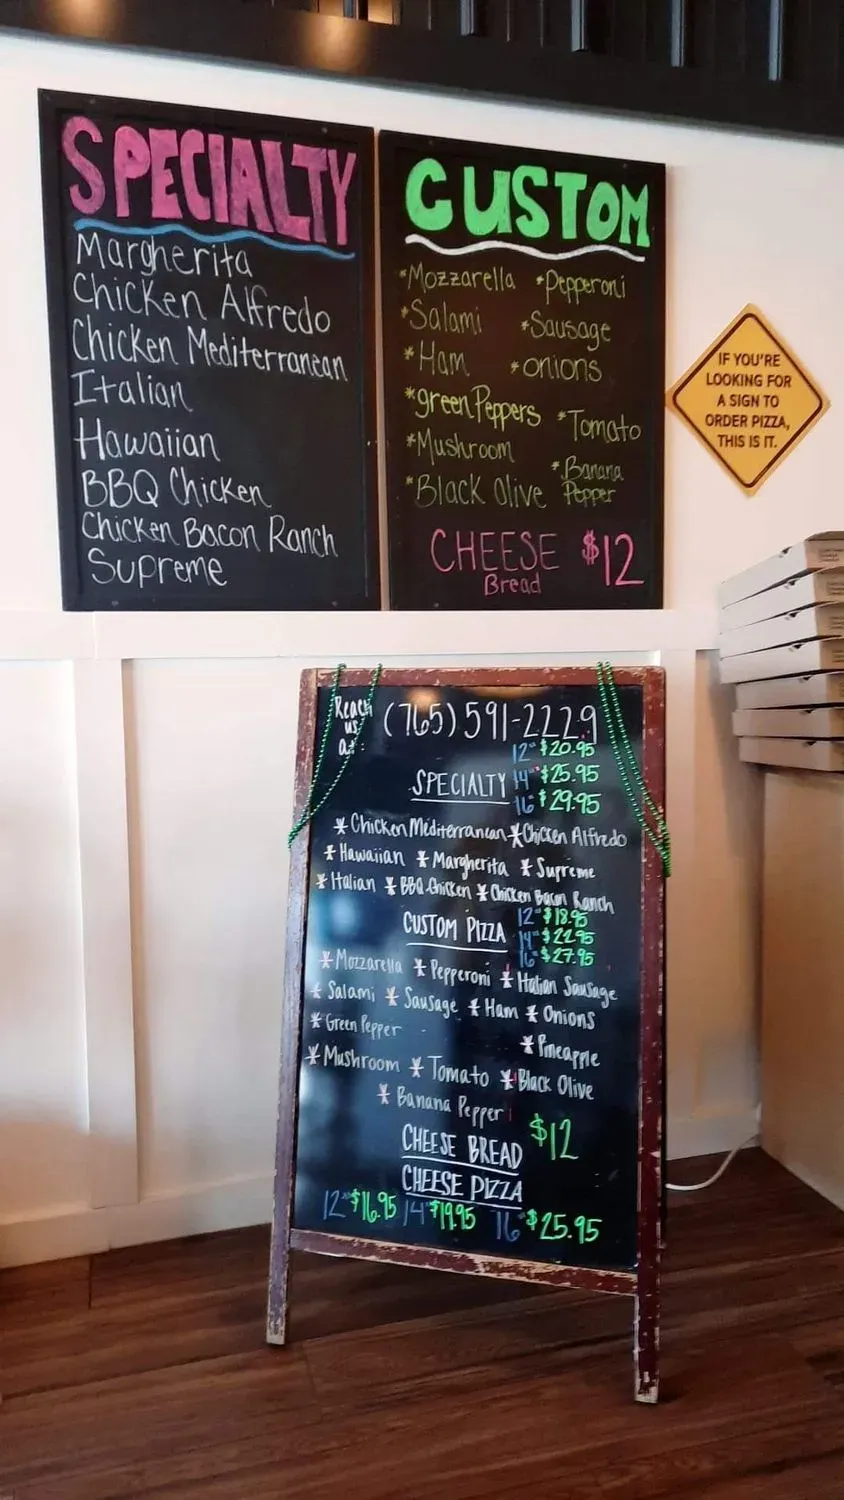 SPECIALTY
Margherita
Chicken Alfredo
Chicken Mediterranean
Italian
Hawaiian
BBQ Chicken
Chicken Bacon Ranch
Supreme
CUSTOM
*Mozzarella *Pepperoni
*Salami *Sausage
*Ham *onions
*green Peppers *Tomato
*Mushroom *Banana Pepper
*Black Olive
CHEESE Bread $12
IF YOU'RE
LOOKING FOR
A SIGN TO
ORDER PIZZA,
THIS IS IT.
Reach us at: (765) 591-2229
SPECIALTY
12" $20.95
14" $25.95
16" $29.95
* Chicken Mediterranean * Chicken Alfredo
* Hawaiian * Margherita * Supreme
* Italian * BBQ Chicken * Chicken Bacon Ranch
CUSTOM PIZZA
12" $18.95
14" $22.95
16" $27.95
* Mozzarella * Pepperoni * Italian Sausage
* Salami * Sausage * Ham * Onions
* Green Pepper * Pineapple
* Mushroom * Tomato * Black Olive
* Banana Pepper
CHEESE BREAD $12
CHEESE PIZZA
12" $16.95 14" $19.95 16" $25.95